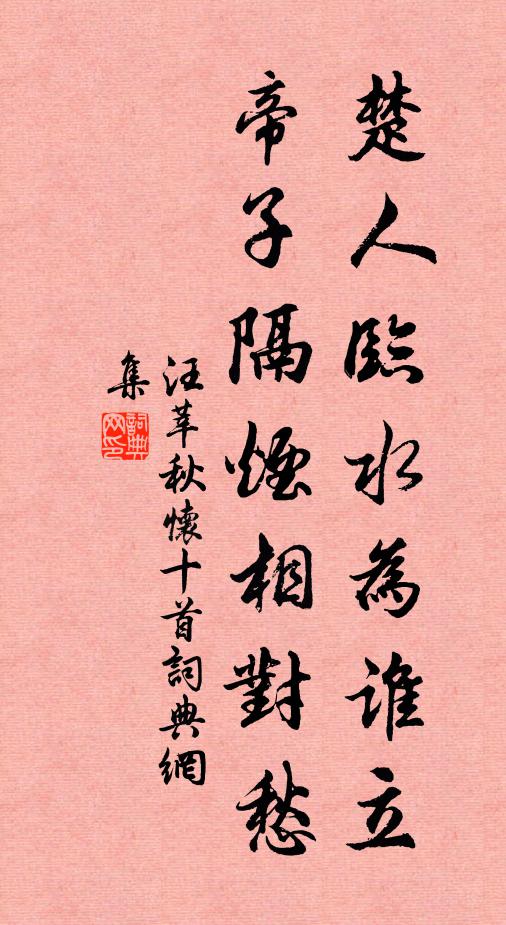 楚人臨水為誰立
帝子隔煙相對愁
汪莘秋懷十首詞典網
集
詞典
网印